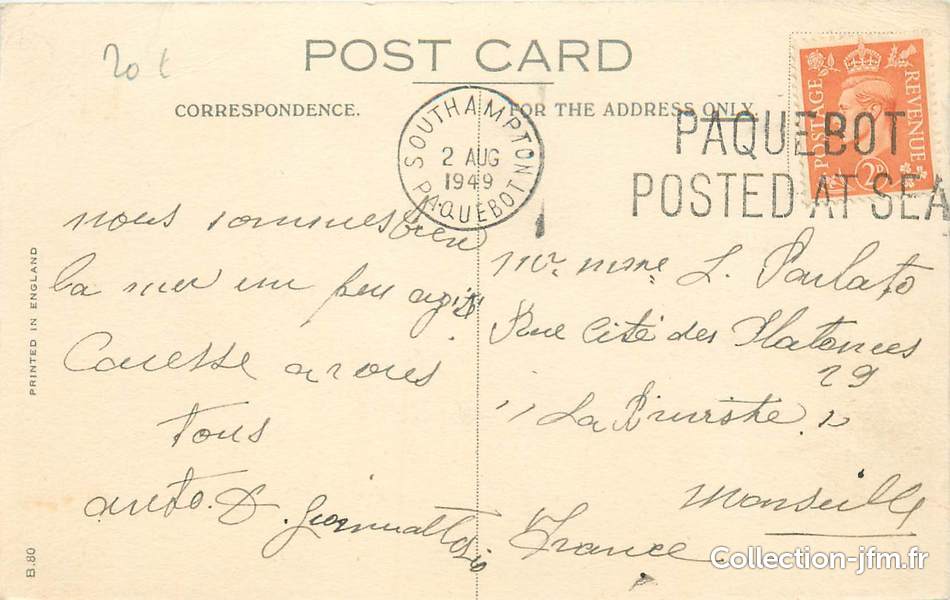 20 t
POST CARD
CORRESPONDENCE.
FOR THE ADDRESS ONLY.
SOUTHAMPTON
2 AUG
1949
PAQUEBOT
PAQUEBOT
POSTED AT SEA
POSTAGE
REVENUE
2D
nous sommes bien
la mer un peu agité
Caresse a vous
tous
PRINTED IN ENGLAND
B.80
Mr. mme L. Paulato
Rue Cité des Platanes
29
" La "
Marseille
France
Collection-jfm.fr